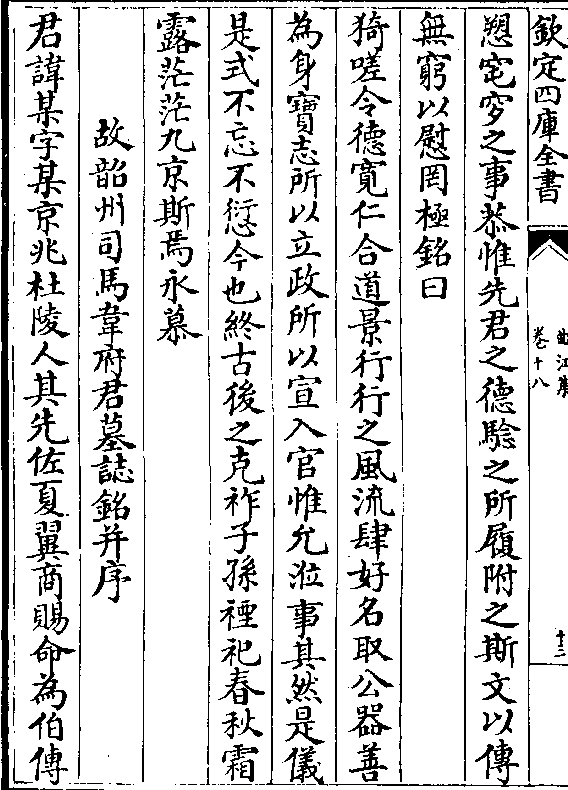 欽定四庫全書
曲江集
卷十八
十三
愬窀穸之事恭惟先君之德騐之所履附之斯文以傳
無窮以慰罔極銘曰
猗嗟令德寛仁合道景行行之風流肆好名取公器善
為身寶志所以立政所以宣入官惟允涖事其然是儀
是式不忘不愆今也終古後之克祚子孫禋祀春秋霜
露茫茫九京斯焉永慕
故韶州司馬韋府君墓誌銘并序
君諱某字某京兆杜陵人其先佐夏翼商賜命為伯傳